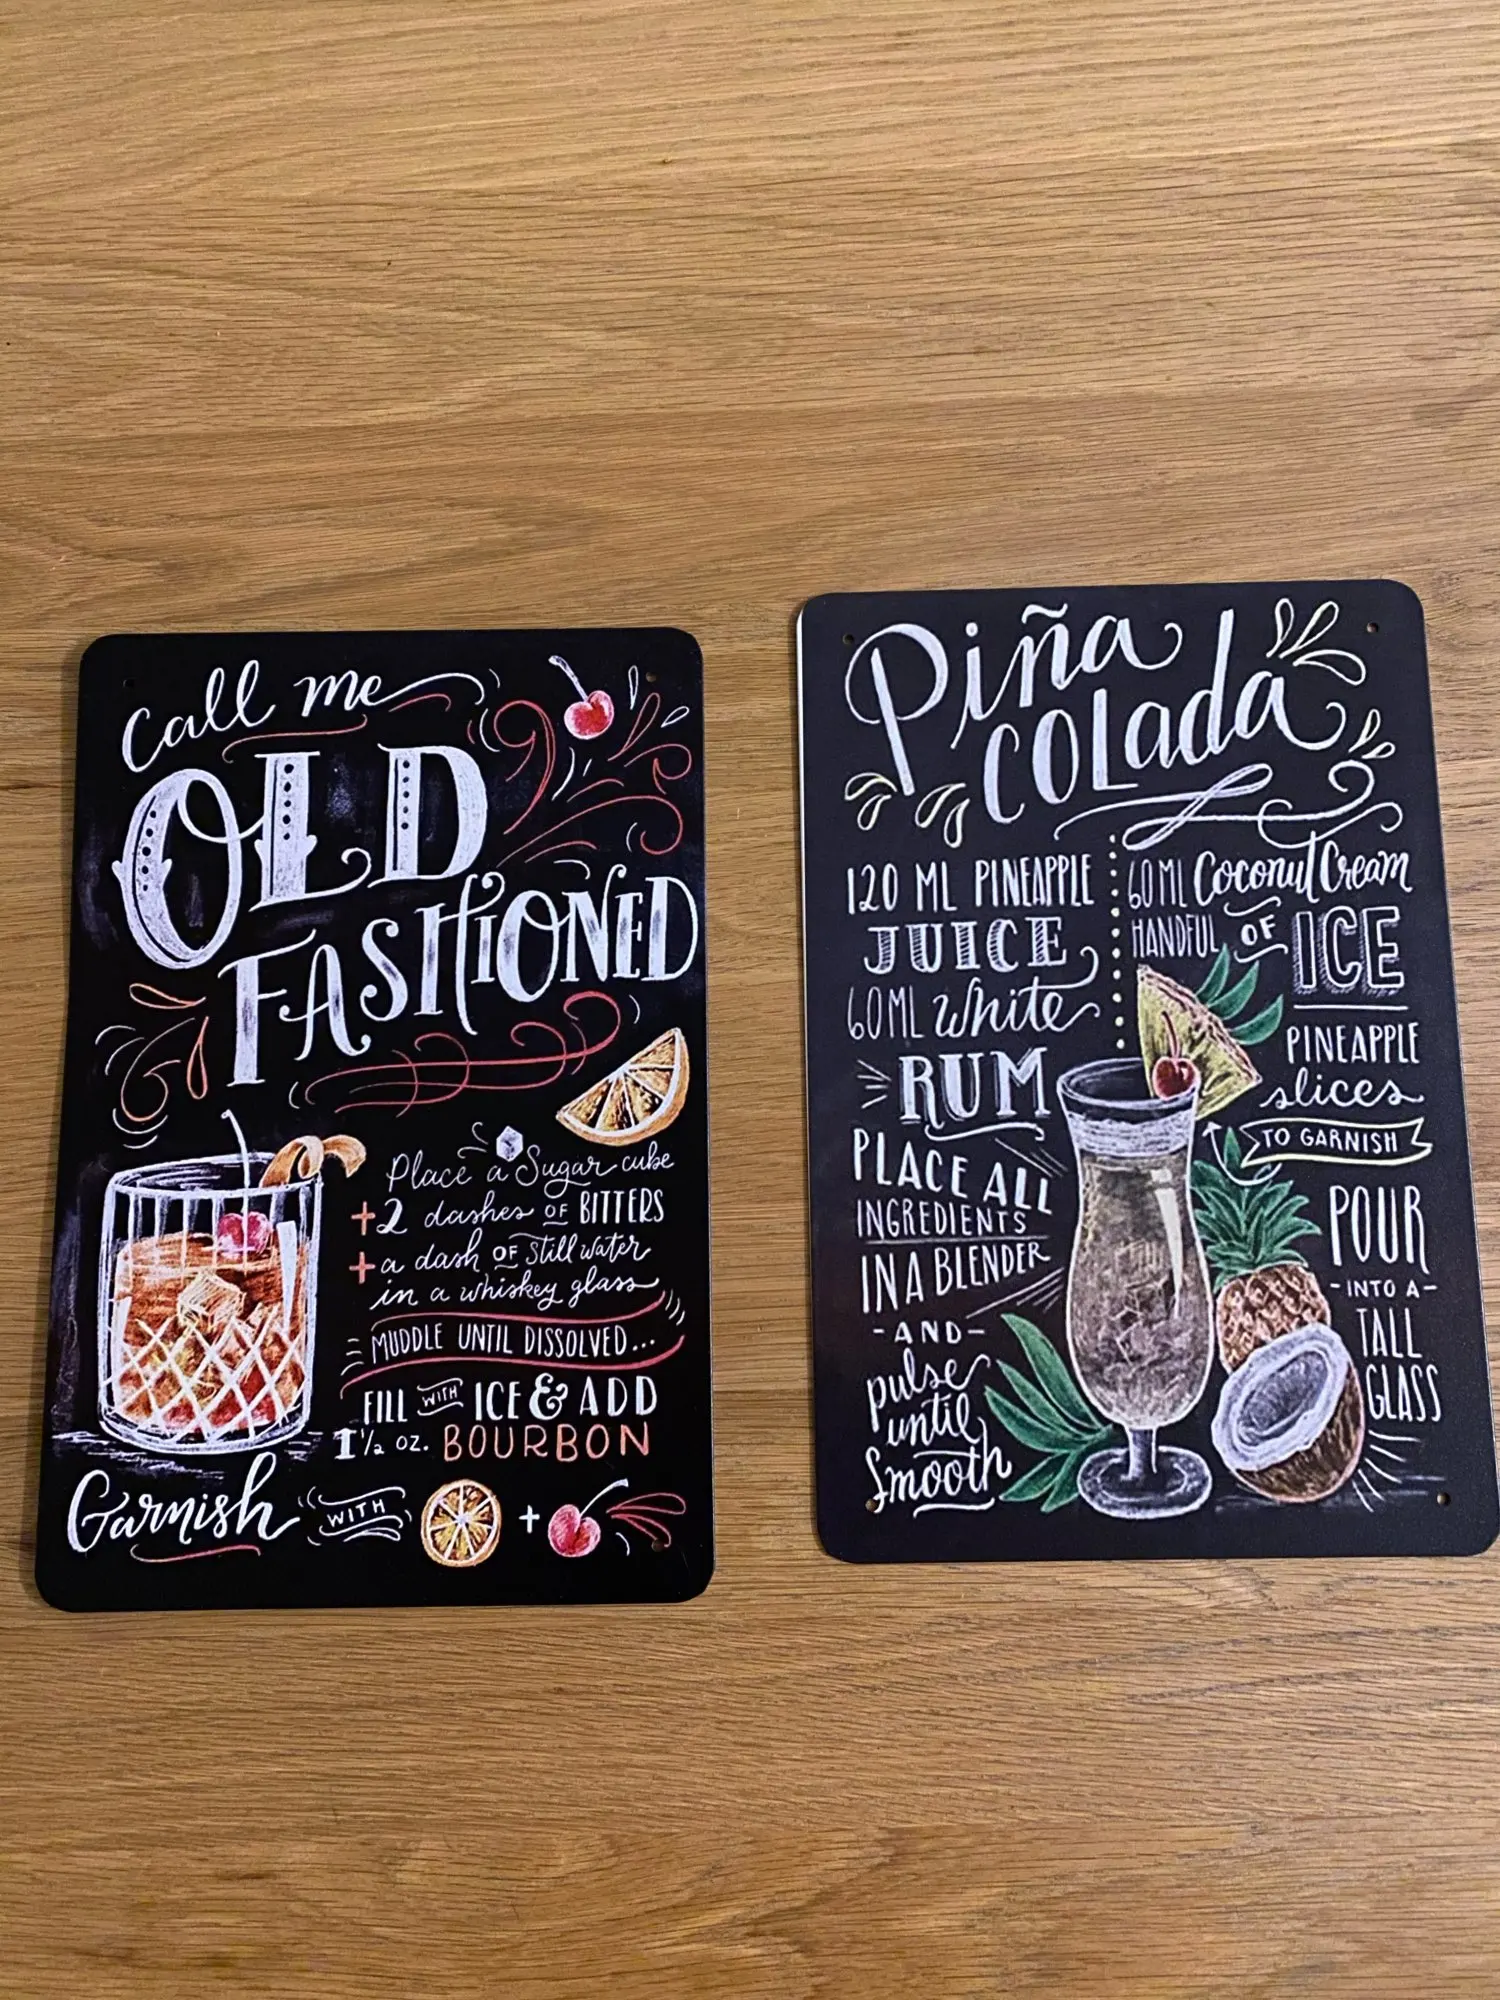 Call me
OLD
FASHIONED
Place a Sugar cube
+2 dashes OF BITTERS
+ a dash OF Still water
in a whiskey glass
MUDDLE UNTIL DISSOLVED...
FILL WITH ICE & ADD
1 1/2 OZ. BOURBON
Garnish WITH +
Piña
COLada
120 ML PINEAPPLE
JUICE
60ML White
RUM
PLACE ALL
INGREDIENTS
IN A BLENDER
-AND-
pulse
until
Smooth
60ML Coconut Cream
HANDFUL OF ICE
PINEAPPLE
slices
TO GARNISH
POUR
-INTO A-
TALL
GLASS